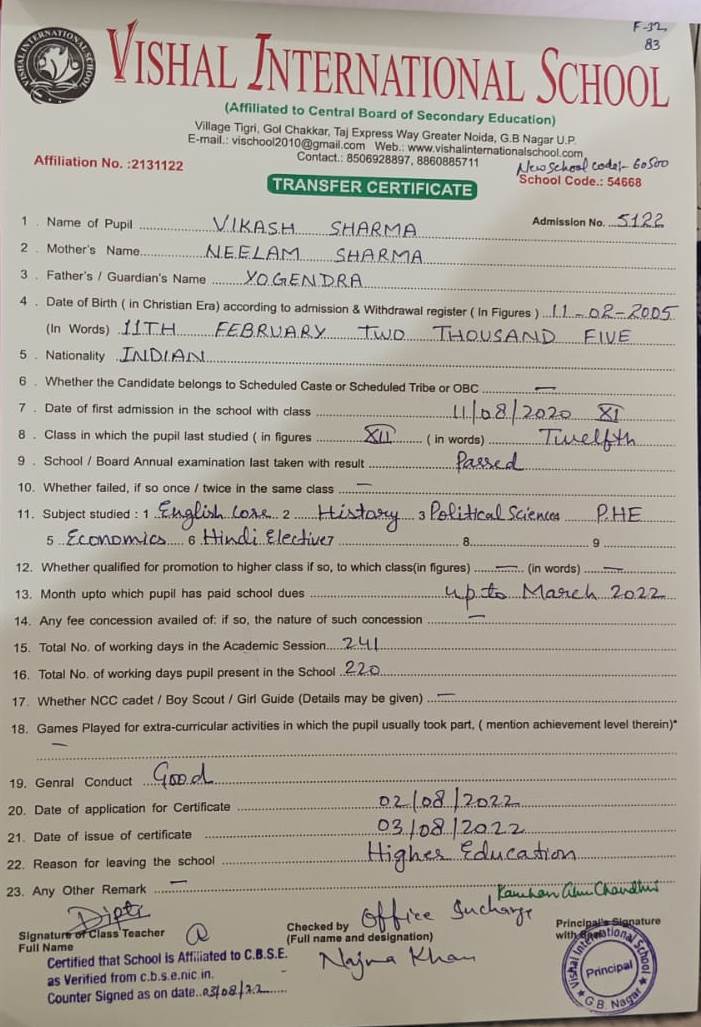 F-32
83
VISHAL INTERNATIONAL SCHOOL
VISHAL INTERNATIONAL SCHOOL
(Affiliated to Central Board of Secondary Education)
Village Tigri, Gol Chakkar, Taj Express Way Greater Noida, G.B Nagar U.P.
E-mail.: vischool2010@gmail.com Web.: www.vishalinternationalschool.com
Contact.: 8506928897, 8860885711
New School code:- 60500
Affiliation No. :2131122
School Code.: 54668
TRANSFER CERTIFICATE
1 . Name of Pupil VIKASH SHARMA Admission No. 5122
2 . Mother's Name NEELAM SHARMA
3 . Father's / Guardian's Name YOGENDRA
4 . Date of Birth ( in Christian Era) according to admission & Withdrawal register ( In Figures ) 11-02-2005
(In Words) 11TH FEBRUARY TWO THOUSAND FIVE
5 . Nationality INDIAN
6 . Whether the Candidate belongs to Scheduled Caste or Scheduled Tribe or OBC —
7 . Date of first admission in the school with class 11/08/2020 XI
8 . Class in which the pupil last studied ( in figures XII ( in words) Twelfth
9 . School / Board Annual examination last taken with result Passed
10. Whether failed, if so once / twice in the same class —
11. Subject studied : 1 English Core 2 History 3 Political Sciences P.HE
5 Economics 6 Hindi Elective 7 8 9
12. Whether qualified for promotion to higher class if so, to which class(in figures) — (in words) —
13. Month upto which pupil has paid school dues up to March 2022
14. Any fee concession availed of: if so, the nature of such concession —
15. Total No. of working days in the Academic Session 241
16. Total No. of working days pupil present in the School 220
17. Whether NCC cadet / Boy Scout / Girl Guide (Details may be given) —
18. Games Played for extra-curricular activities in which the pupil usually took part, ( mention achievement level therein)*
—
19. Genral Conduct Good
20. Date of application for Certificate 02/08/2022
21. Date of issue of certificate 03/08/2022
22. Reason for leaving the school Higher Education
23. Any Other Remark —
Signature of Class Teacher
Full Name
Checked by Office Incharge
(Full name and designation)
Najma Khan
Principal's Signature
with
Certified that School is Affiliated to C.B.S.E.
as Verified from c.b.s.e.nic.in.
Counter Signed as on date 03/08/22
Vishal International School
Principal
G.B. Nagar